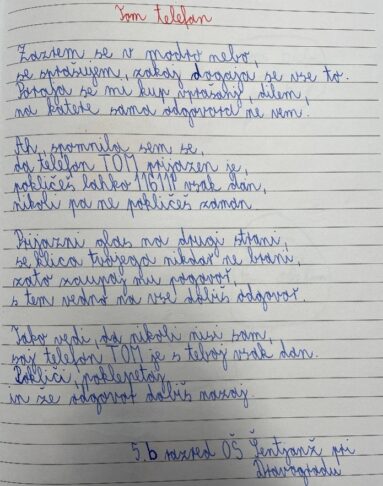 Tom telefon
Zazrem se v modro nebo,
se sprašujem, zakaj dogaja se vse to.
Poraja se mi kup vprašanj, dilem,
na katere sama odgovora ne vem.
Ah, spomnila sem se,
da telefon TOM prijazen je,
pokličeš lahko 116111 vsak dan,
nikoli pa ne pokličeš zaman.
Prijazni glas na drugi strani,
se klica tvojega nikdar ne brani,
zato zaupaj mu pogovor,
s tem vedno na vse dobiš odgovor.
Tako vedi, da nikoli nisi sam,
saj telefon TOM je s teboj vsak dan.
Pokliči, poklepetaj,
in že odgovor dobiš nazaj.
5.b razred OŠ Šentjanž pri
Dravogradu